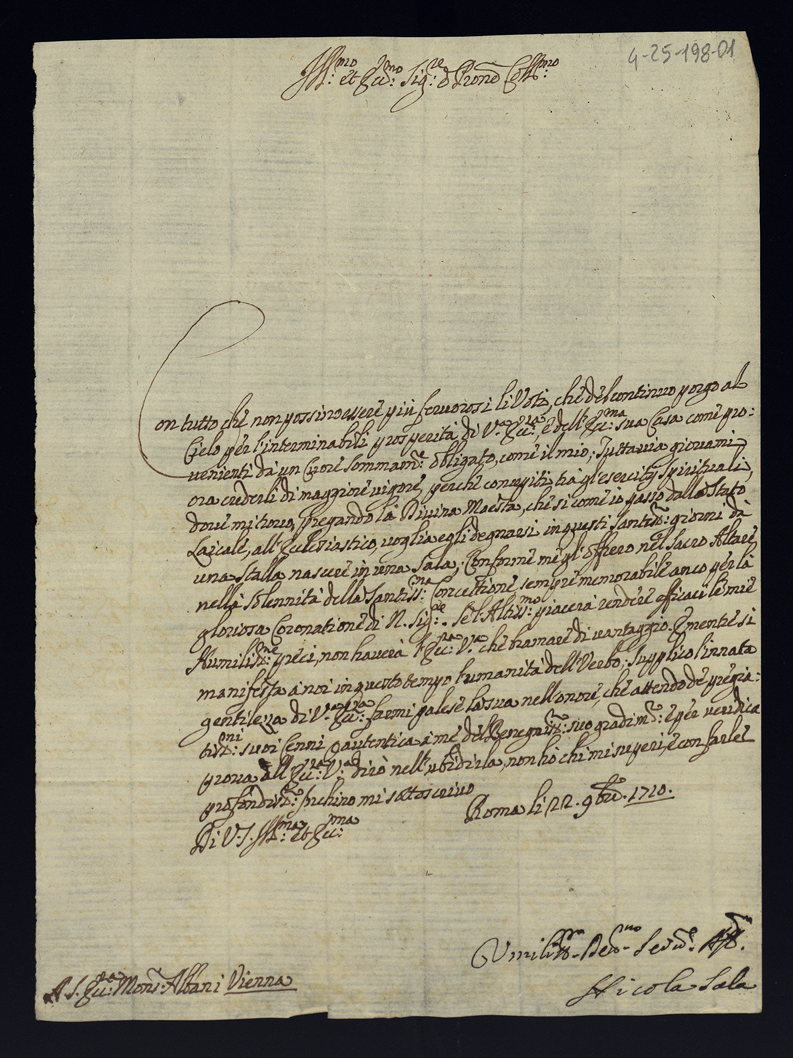 4-25-198-01
Ill:mo et Ecc:mo Sig:re e Pron Col:mo
Con tutto che non possino essere più fervorosi li Voti, che del continuo porgo al
Cielo per l'interminabili prosperità di V:ra Ecc:za, e dell'Ecc:ma sua Casa come pro:
venienti da un Cuore sommam:te obligato, come il mio; Tuttavia giovami
ora crederli di maggiore vigore, perche compiti trà gl'esercitij spirituali,
dove mi trovo, pregando la Divina Maestà, che si come io passo dallo Stato
Laicale, all'Ecclesiastico, voglia egli degnarsi in questi Santiss: giorni da
una Stalla nascere in una Sala; Conforme me gl'offiero nel Sacro Altare
nella solennità della Santiss:ma Concettione sempre memorabile anco per la
gloriosa Coronatione di N. Sig:re. Se l'Altiss:mo piacerà rendere efficaci le mie
humiliss:me preci, non haverà l'Ecc:za V:ra che bramare di vantaggio. E mentre si
manifesta à noi in questo tempo l'umanità dell'Verbo; supplico l'innata
gentilezza di V:ra Ecc:za farmi palese la sua nell'onore, che attendo de pregia:
tiss:mi suoi Cenni autentica à me del benegniss: suo gradim:to: E per veridica
prova all'Ecc:za V:ra dirò nell'ubidirla, non hò chi mi superi, e con farle
profondiss:o Inchino mi sottoscrivo
Di V.S. Ill:ma et Ecc:ma
Roma li 22. 9bre. 1710.
Umiliss:mo Dev:mo Serv:e
Nicola Sala
A S. Ecc:za Mons:r Albani Vienna